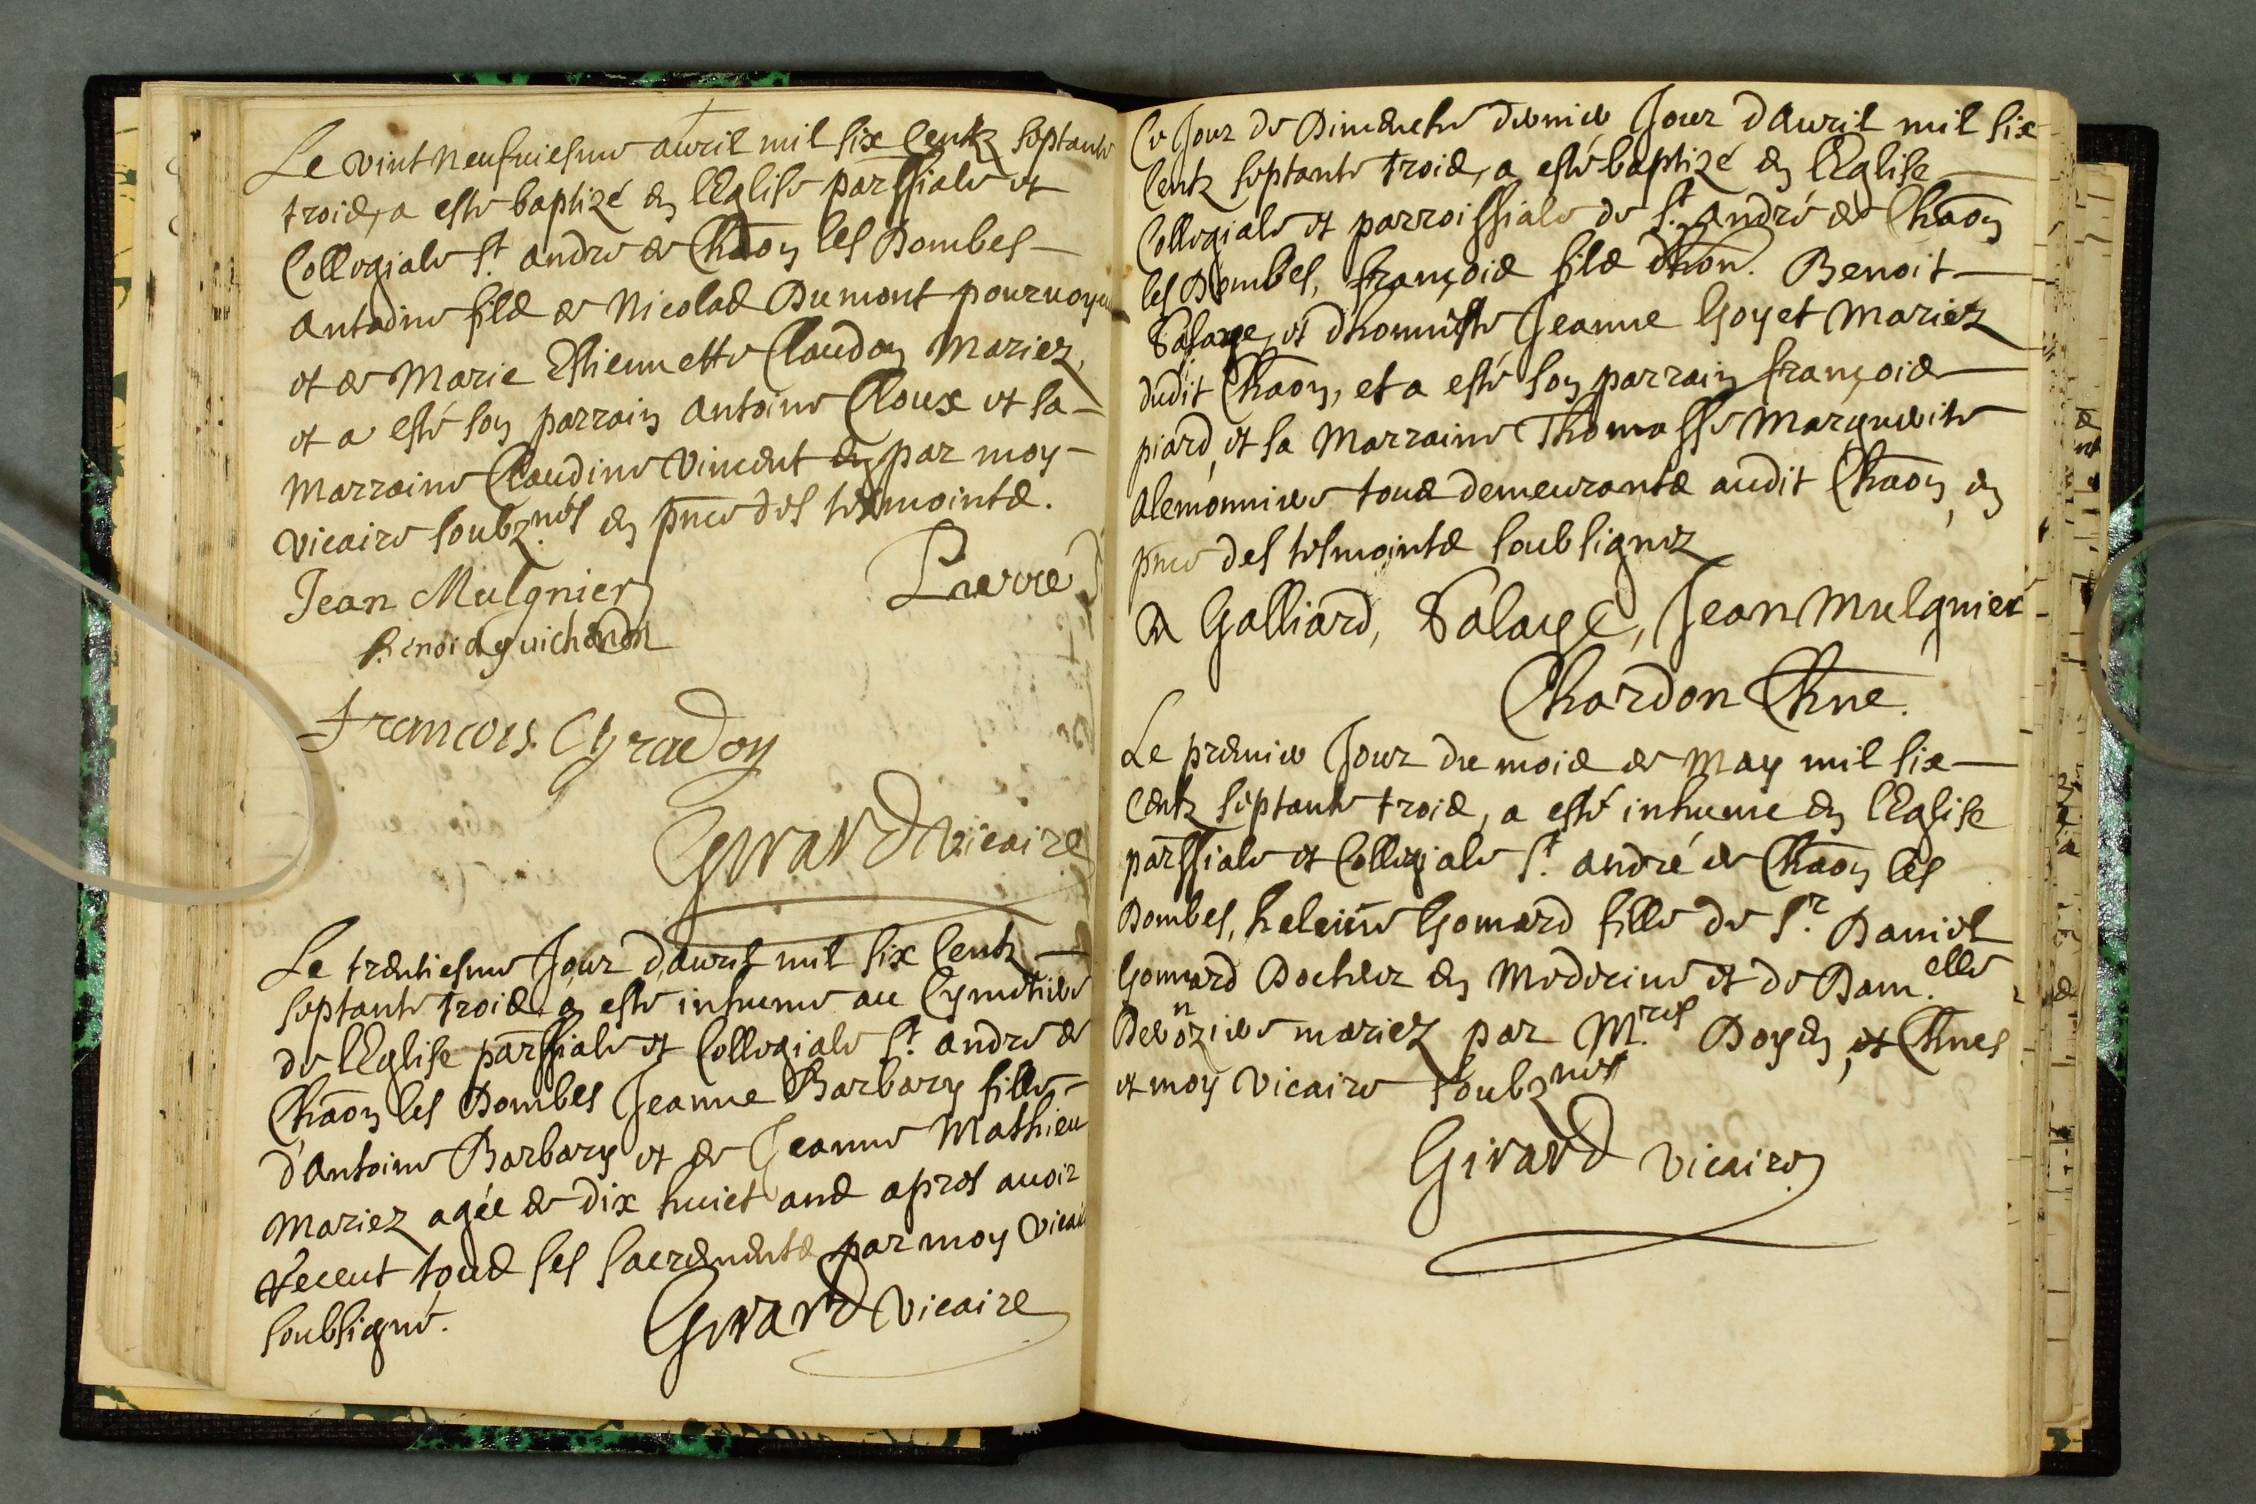 Le vint neufuiesme auril mil six Centz septante
trois, a esté baptizé en l'Eglise par̃ssiale et
Collegiale St. andre de Chãon les Dombes
Antoine fils de Nicolas Dumont pouruoyeu
et de Marie Estiennette Claudon Mariez,
et a esté son parrain Antoine Cloux et sa
Marraine Claudine Vincent par moy
vicaire soubz.nés en pñce des tesmoints.
Jean Mulgnier Pierre
Benoid guichardon
francois Cyradon
Girard vicaire
Le trentiesme Jour d'auril mil six Centz
septante trois, a esté inhumé au Cymetiere
de l'Eglise par̃ssiale et Collegiale St. andre de
Chãon les Dombes Jeanne Barbary fille
d'Antoine Barbary et de Jeanne Mathieu
Mariez agée de dix huict ans apres auoir
receut tous ses sacrements par moy vicai
soubsigné.
Girard vicaire
Ce Jour de Dimenche dernier Jour d'Auril mil six
Centz septante trois, a esté baptizé en l'Eglise
Collegiale et parroissiale de St. André de Chãon
les Dombes, françois fils d'hon. Benoit
Salaye, et d'honneste Jeanne Goyet Mariez
dudit Chãon, et a esté son parrain françois
piard, et sa Marraine Thomasse Marguerite
Alemonniere tous demeurants audit Chãon, en
pñce des tesmoints soubsignez
Galliard, Salaye, Jean Mulgnier
Chardon Chne.
Le premier Jour du mois de May mil six
Centz septante trois, a esté inhume en l'Eglise
par̃ssiale et Collegiale St. andré de Chãon les
Dombes, heleine Gomard fille de Sr. Daniel
Gomard Docteur en Medecine et de Dam.elle
mariez par M.res Doyen, et Chnes
et moy Vicaire soubz.nés
Girard vicaire